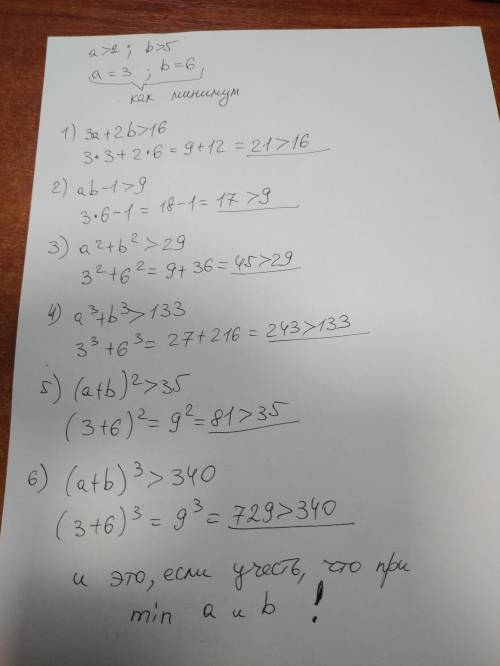 a>2; b>5
a=3 ; b=6
как минимум
1) 3a+2b>16
3*3+2*6=9+12=21>16
2) ab-1>9
3*6-1=18-1=17>9
3) a²+b²>29
3²+6²=9+36=45>29
4) a³+b³>133
3³+6³=27+216=243>133
5) (a+b)²>35
(3+6)²=9²=81>35
6) (a+b)³>340
(3+6)³=9³=729>340
и это, если учесть, что при
min a и b !